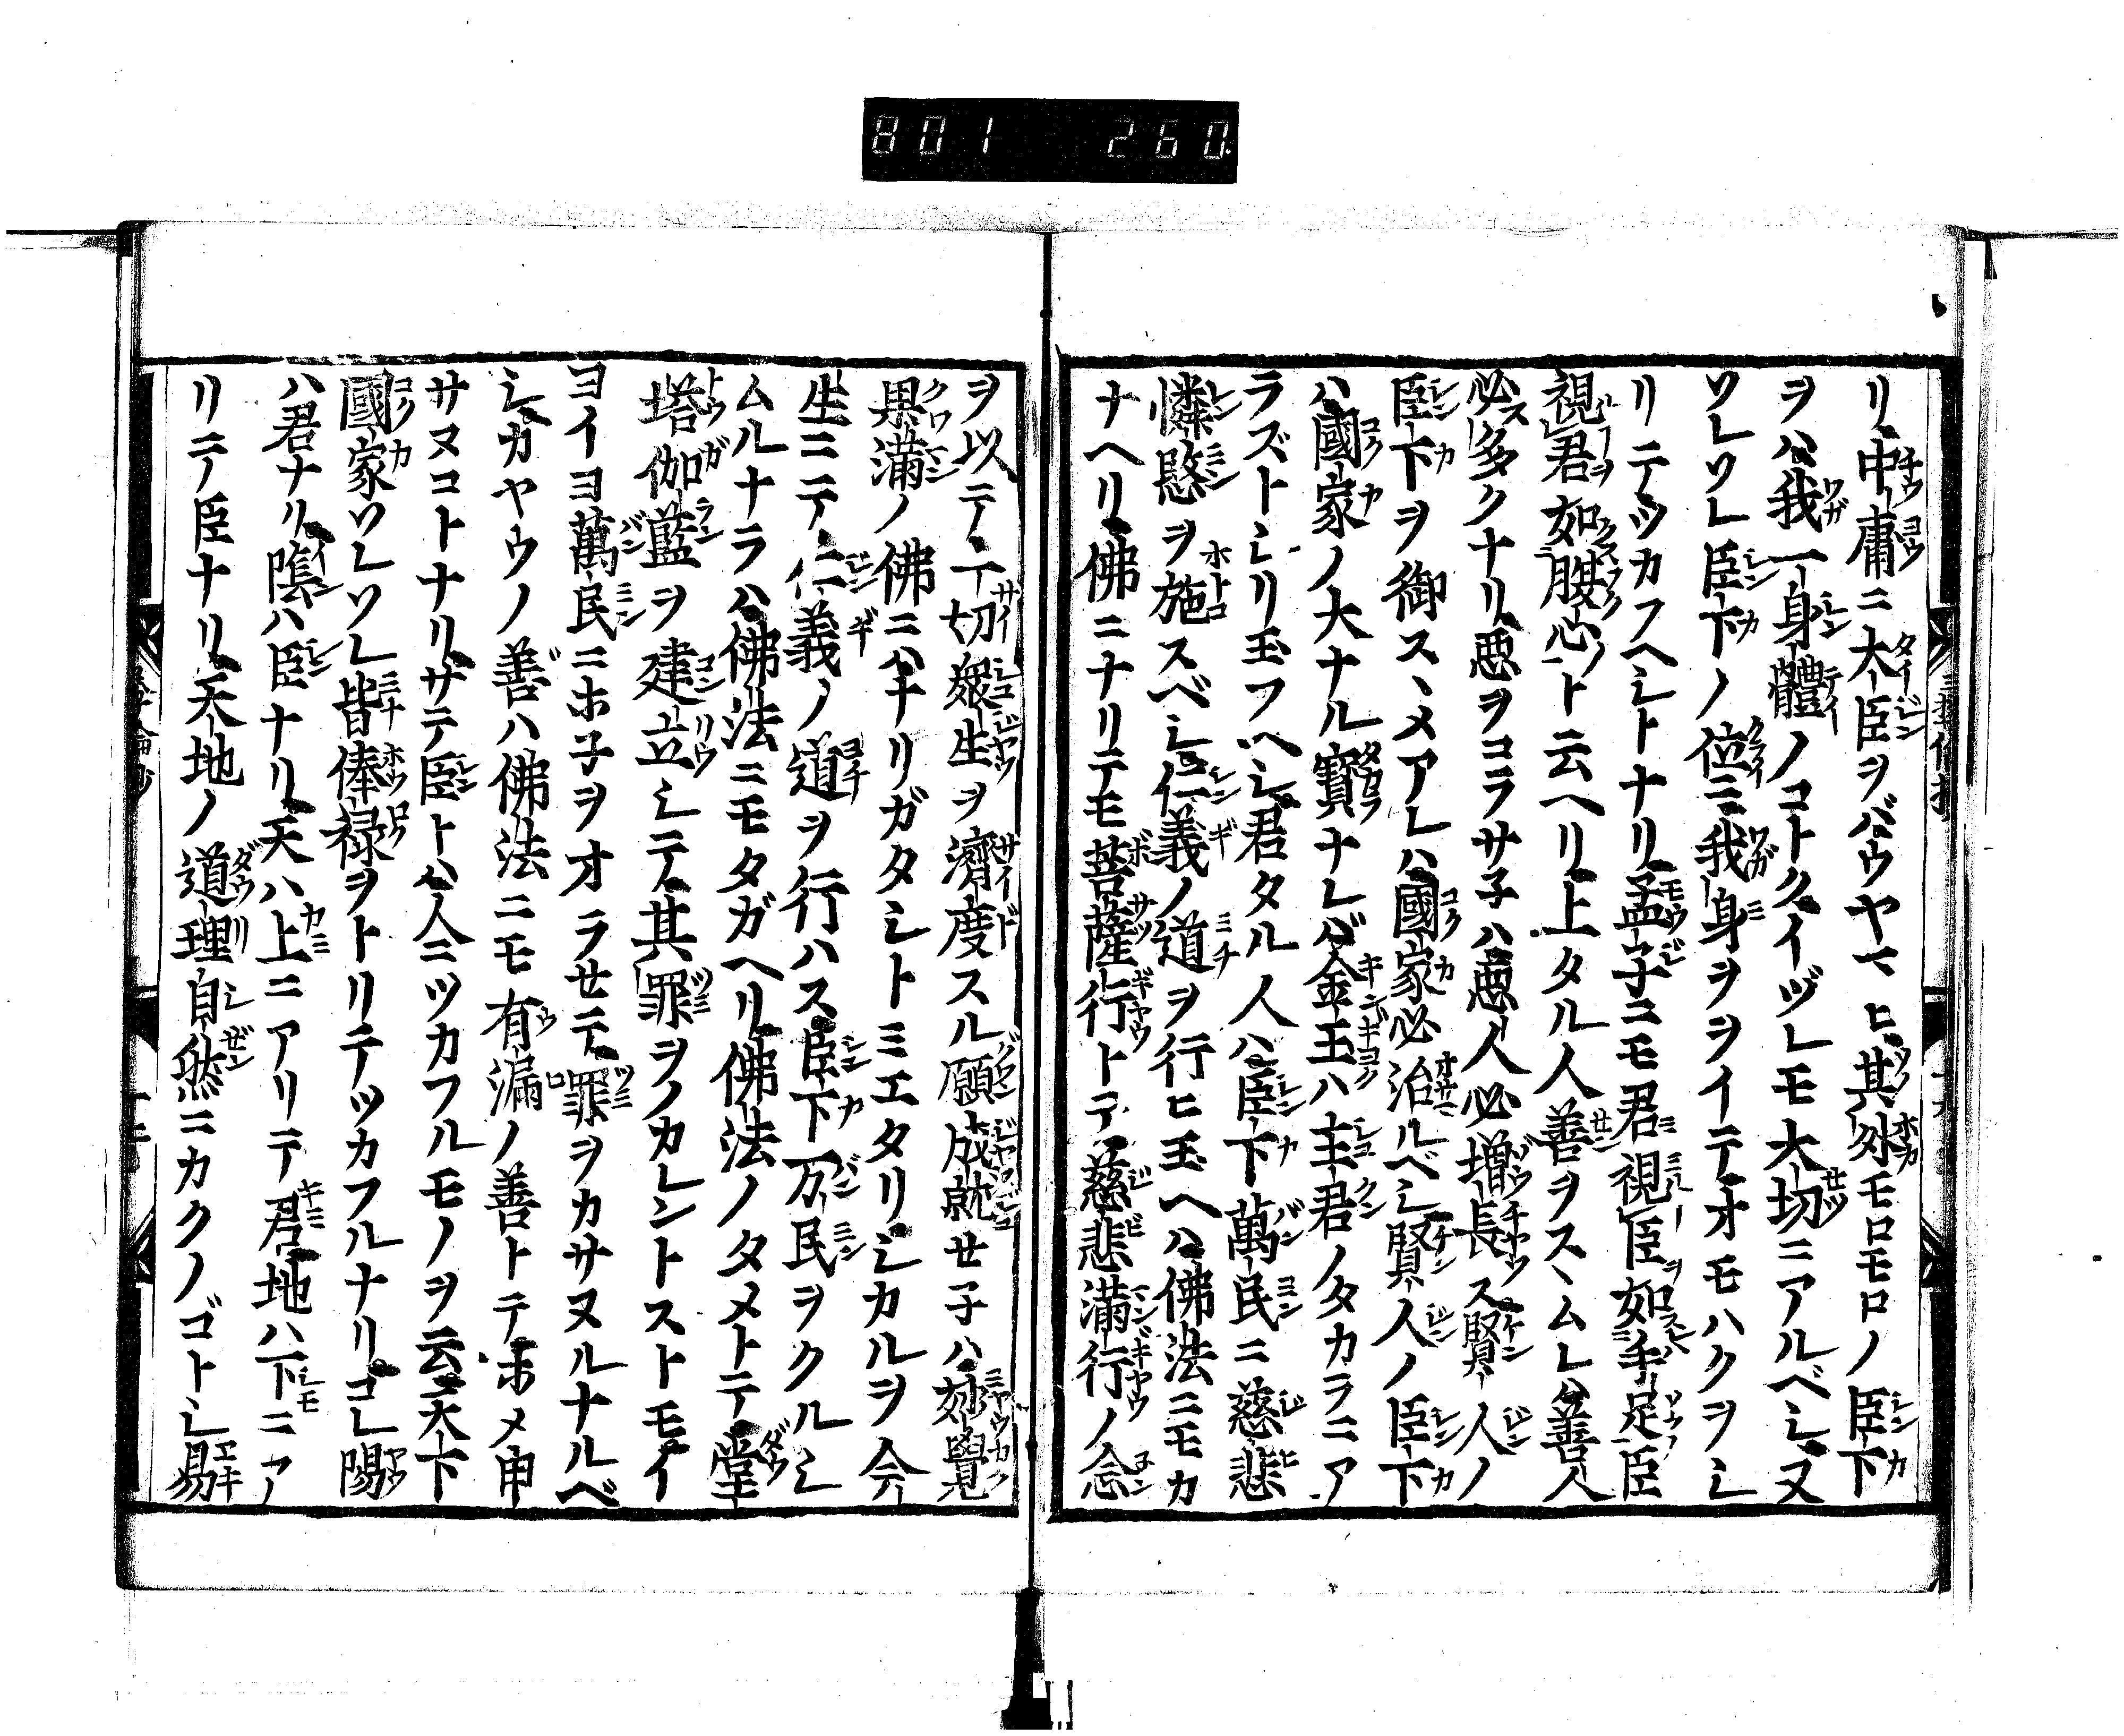 801 260
リ中庸ニ大臣ヲバウヤマヒ其外モロモロノ臣下
ヲハ我一身體ノコトクイヅレモ大切ニアルベシ又
ソレソレ臣下ノ位ニ我身ヲヲイテオモハクヲシ
リテツカフヘシトナリ孟子ニモ君視臣如手足臣
視君如腹心ト云ヘリ上タル人善ヲスヽムレハ善人
必多クナリ悪ヲコラサ子ハ悪人必増長ス賢人ノ
臣下ヲ御スヽメアレハ國家必治ルベシ賢人ノ臣下
ハ國家ノ大ナル寳ナレバ金玉ハ主君ノタカラニア
ラズトシリ玉フヘシ君タル人ハ臣下萬民ニ慈悲
憐愍ヲ施スベシ仁義ノ道ヲ行ヒ玉ヘハ佛法ニモカ
ナヘリ佛ニナリテモ菩薩行トテ慈悲満行ノ念
ヲ以テ一切衆生ヲ濟度スル願成就せ子ハ妙覺
果満ノ佛ニハナリガタシトミエタリシカルヲ今
生ニテ仁義ノ道ヲ行ハス臣下万民ヲクルシ
ムルナラハ佛法ニモタガヘリ佛法ノタメトテ堂
塔伽藍ヲ建立シテ其罪ヲノカレントストモイ
ヨイヨ萬民ニホ子ヲオラせテ罪ヲカサヌルナルベ
シカヤウノ善ハ佛法ニモ有漏ノ善トテホメ申
サヌコトナリサテ臣トハ人ニツカフルモノヲ云天下
國家ソレソレ皆俸禄ヲトリテツカフルナリコレ陽
ハ君ナリ陰ハ臣ナリ天ハ上ニアリテ君地ハ下ニア
リテ臣ナリ天地ノ道理自然ニカクノゴトシ易